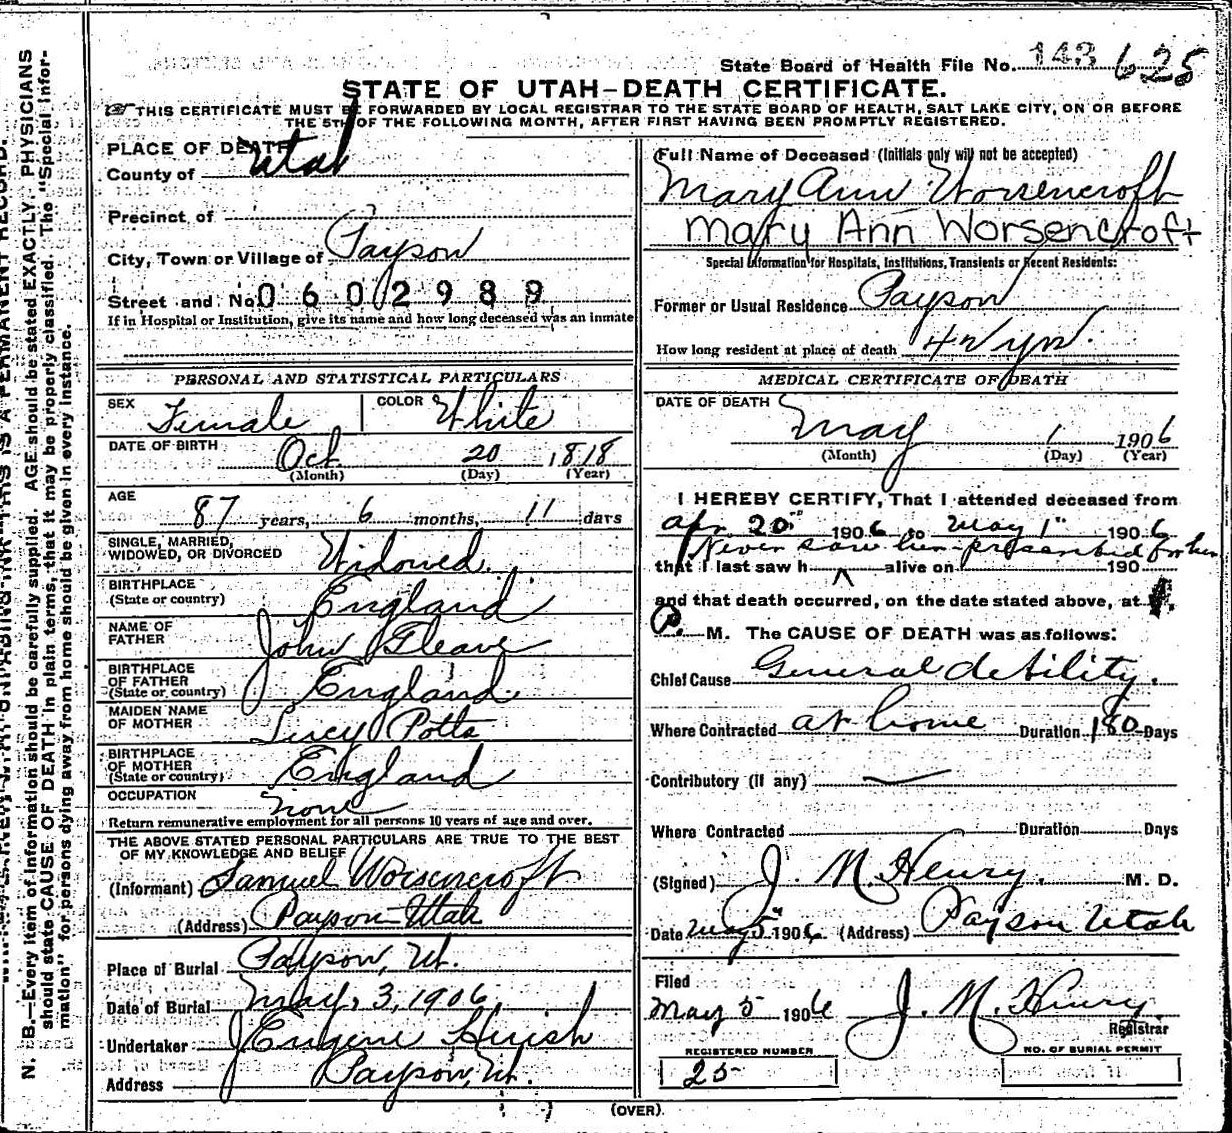 State Board of Health File No. 143 625
STATE OF UTAH—DEATH CERTIFICATE.
THIS CERTIFICATE MUST BE FORWARDED BY LOCAL REGISTRAR TO THE STATE BOARD OF HEALTH, SALT LAKE CITY, ON OR BEFORE
THE 5TH OF THE FOLLOWING MONTH, AFTER FIRST HAVING BEEN PROMPTLY REGISTERED.
PLACE OF DEATH
County of Utah
Precinct of
City, Town or Village of Payson
Street and No. 0602989
If in Hospital or Institution, give its name and how long deceased was an inmate
PERSONAL AND STATISTICAL PARTICULARS
SEX Female COLOR White
DATE OF BIRTH Oct 20 1818
(Month) (Day) (Year)
AGE
87 years, 6 months, 11 days
SINGLE, MARRIED,
WIDOWED, OR DIVORCED Widowed.
BIRTHPLACE
(State or country) England
NAME OF
FATHER John Cleave
BIRTHPLACE
OF FATHER
(State or country) England.
MAIDEN NAME
OF MOTHER Lucy Potts
BIRTHPLACE
OF MOTHER
(State or country) England
OCCUPATION none
Return remunerative employment for all persons 10 years of age and over.
THE ABOVE STATED PERSONAL PARTICULARS ARE TRUE TO THE BEST
OF MY KNOWLEDGE AND BELIEF
(Informant) Samuel Worsencroft
(Address) Payson Utah
Place of Burial Payson, Ut.
Date of Burial May, 3, 1906
Undertaker J Eugene Huish
Address Payson, Ut.
Full Name of Deceased (Initials only will not be accepted)
Mary Ann Worsencroft
Mary Ann Worsencroft
Special Information for Hospitals, Institutions, Transients or Recent Residents:
Former or Usual Residence Payson
How long resident at place of death 42 yrs.
MEDICAL CERTIFICATE OF DEATH
DATE OF DEATH
May 1 1906
(Month) (Day) (Year)
I HEREBY CERTIFY, That I attended deceased from
Apr. 20" 1906 to May 1" 1906
Never saw her—prescribed for her
that I last saw h alive on 190
and that death occurred, on the date stated above, at
P. M. The CAUSE OF DEATH was as follows:
Chief Cause General debility.
Where Contracted at home Duration 180 Days
Contributory (if any)
Where Contracted Duration Days
(Signed) J. M. Henry. M. D.
Date May 5" 1906. (Address) Payson Utah
Filed
May 5 1906 J. M. Henry
Registrar
REGISTERED NUMBER NO. OF BURIAL PERMIT
25
(OVER)
N. B.—Every item of information should be carefully supplied. AGE should be stated EXACTLY. PHYSICIANS
should state CAUSE OF DEATH in plain terms, that it may be properly classified. The "Special Infor-
mation" for persons dying away from home should be given in every instance.